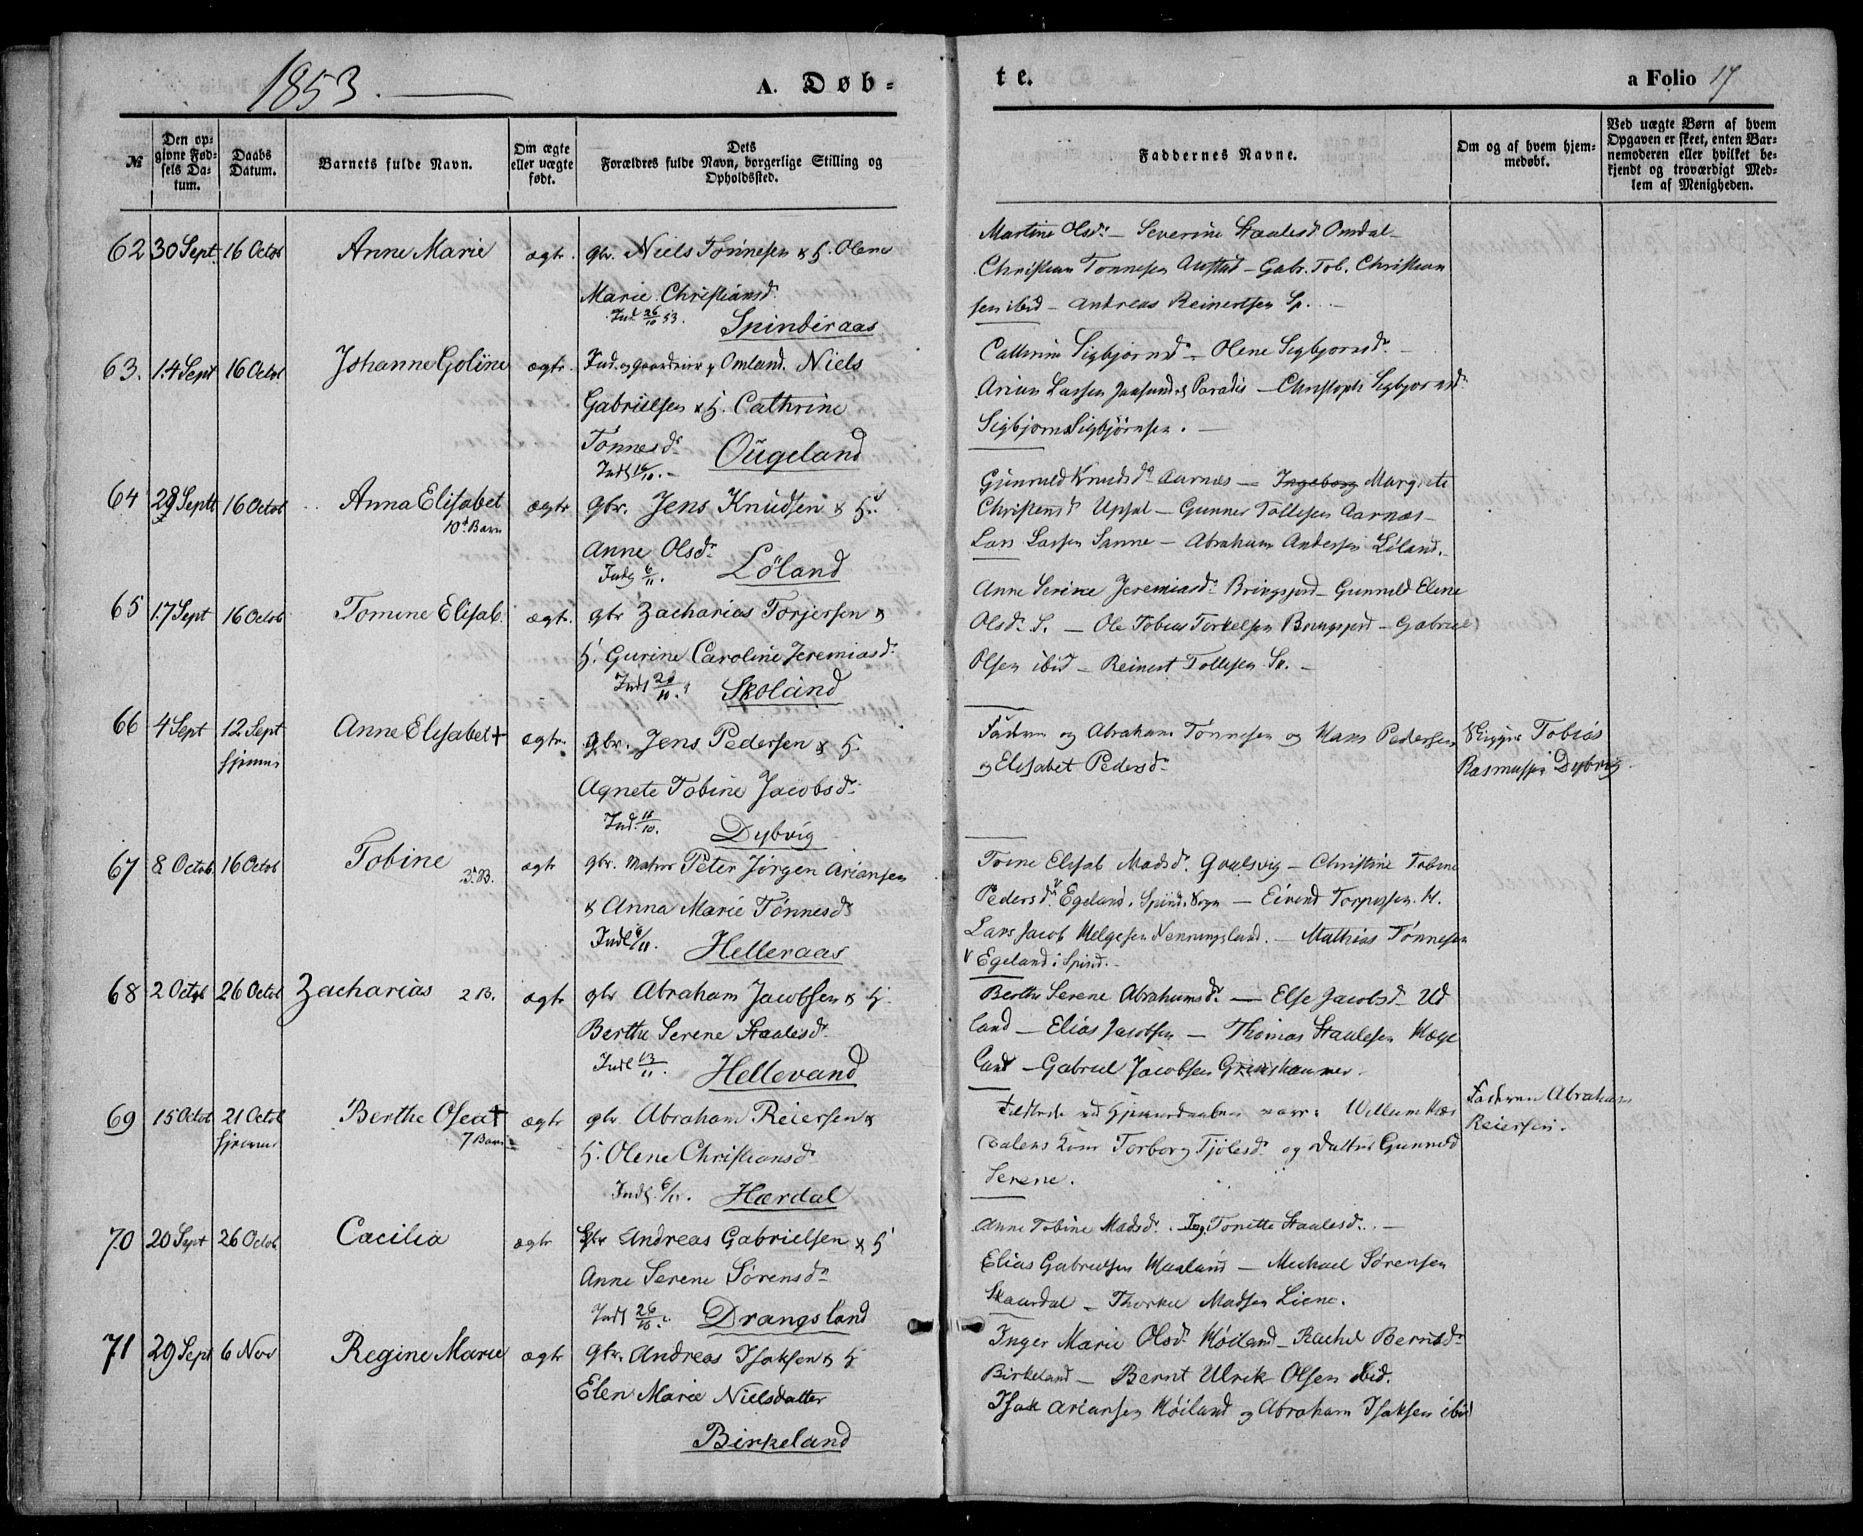 1853.
A. Døb-
te.
a Folio 17
№
Den op-
givne Fød-
sels Da-
tum.
Daabs
Datum.
Barnets fulde Navn.
Om ægte
eller uægte
født.
Dets
Forældres fulde Navn, borgerlige Stilling og
Opholdssted.
Faddernes Navne.
Om og af hvem hjem-
medøbt.
Ved uægte Børn af hvem
Opgaven er skeet, enten Bar-
nemoderen eller hvilket be-
kjendt og troværdigt Med-
lem af Menigheden.
62 30 Sept. 16 Octob Anne Marie ægtr. gbr. Niels Tønnesen & H. Olene
Marie Christiansd.
Ind. 26/10 53. Spinderaas
Martine Olsdr. – Severine Staalesd Omdal –
Christian Tønnesen Austad – Gabr. Tob. Christian
sen ibid – Andreas Reinertsen Sp. –
63. 14 Sept 16 Octob Johanne Goline ægtr. Ind. og Omland. Niels
Gabrielsen & H. Cathrine
Tønnesdr.
Ougeland
Cathrine Sigbjørnsd – Olene Sigbjørnsdr. –
Arian Larsen Paradis – Christoph Sigbjørnsdr
Sigbjørn Sigbjørnsen. –
64 28 Septb 16 Octob Anna Elisabet ægtr gbr. Jens Knudsen & H.
10d. Barn
Anne Olsdr.
Indg 6/11. Löland
Gunnuld Knudsdr Aarnæs – Ingeborg Margrete
Christensdr Upsal – Gunner Tollesen Aarnæs –
Lars Larsen Sanne – Abraham Andersen Löland.
65 17 Sept 16 Octob Tomine Elisab. ægtr. gbr Zacharias Torjersen &
H. Gurine Caroline Jeremiasdr.
Indl 29/10. Skoland
Anne Serine Jeremiasdr. Bringsjord – Gunnuld Elene
Olsdr. S. – Ole Tobias Torkelsen Bringsjord – Gabriel
Olsen ibid – Reinert Tollesen Sp. –
66 4 Sept 12 Sept Anne Elisabet + ægtr. gbr. Jens Pedersen & H.
hjemme
Agnete Tobine Jacobsdr.
Ind. 16/10. Dybvig
Faderen og Abraham Tønnesen og Hans Pedersen
og Elisabet Pedersdr.
Tobias
Rasmussen Dybvig.
67 8 Octob. 16 Octob Tobine 3d. B. ægtr gbr. Matros Peter Jørgen Ariansen
& Anna Marie Tønnesdr
Indl 6/11. Helleraas
Toine Elisab Madsdr. Gaulsvig – Christine Tobine
Pedersdr. Egeland, Spind. Sogn – Eivind Torgussen H.
Lars Jacob Helgesen Nenningsland. – Mathias Tønnesen
Egeland i Spind. –
68 2 Octob 26 Octob Zacharias 2 B. ægtr gbr Abraham Jacobsen & H.
Berthe Serene Staalesdr.
Indl 13/11. Hellevand
Berthe Serene Abrahamsdr. – Else Jacobsdr Ud
land – Elias Jacobsen – Thomas Staalesen Hæge
land – Gabriel Jacobsen Grimshammer.
69 15 Octob 21 Octob Berthe Osea + ægtr gbr Abraham Reiersen &
hjemme 7 Barn
H. Olene Christiansdr.
Indl. 6/11. Hærdal
Tilstede ved Hjemmedaaben var: Willum Hær
dalens Kone Torborg Tjølesdr. og Datter Gunnuld
Serene.
Faderen Abraham
Reiersen.
70 20 Sept 26 Octob Cæcilia ægtr gbr Andreas Gabrielsen & H
Anne Serene Sørensdr
Indl 26/10. Drangsland
Anne Tobine Madsdr. Ing. Tonette Staalesdr. –
Elias Gabrielsen Haaland – Michael Sørensen
Skaardal – Thorkel Madsen Liene.
71 29 Sept 6 Nov Regine Marie ægtr gbr. Andreas Isaksen & H
Elen Marie Nielsdatter
Birkeland
Inger Marie Olsdr Høiland – Rachel Berntsdr
Birkeland – Bernt Ulrik Olsen ibid.
Isak Ariansen Høiland og Abraham Isaksen ibid